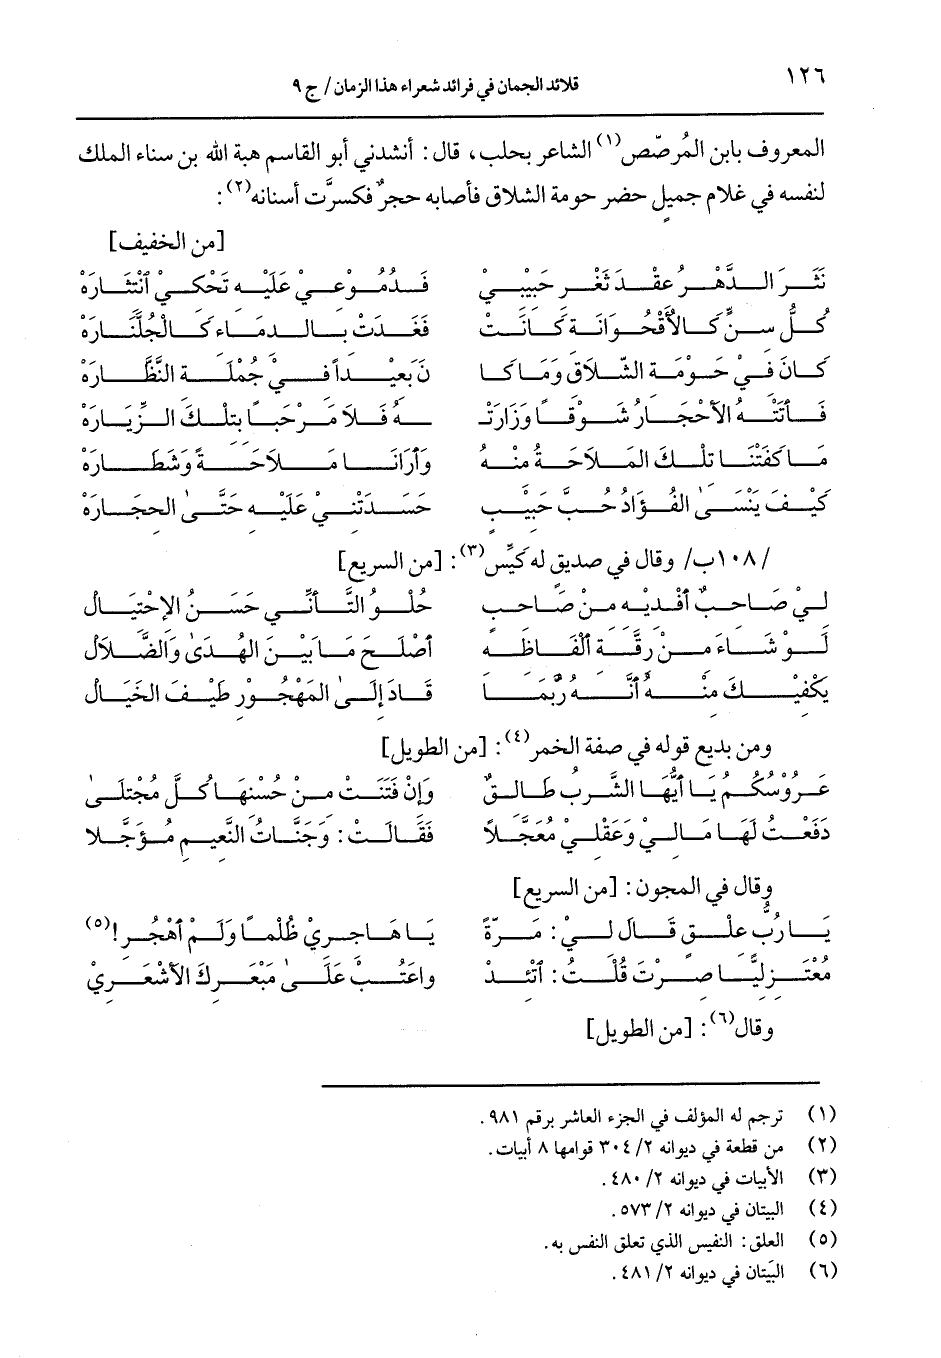 ١٢٦
قلائد الجمان في فرائد شعراء هذا الزمان / ج ٩
المعروف بابن المُرصّص(١) الشاعر بحلب، قال: أنشدني أبو القاسم هبة الله بن سناء الملك
لنفسه في غلام جميلٍ حضر حومة الشلاق فأصابه حجرٌ فكسرَّت أسنانه(٢):
[من الخفيف]
نَثَرَ الدَّهْرُ عِقْدَ ثَغْرِ حَبِيْبِيْ فَدُمُوْعِيْ عَلَيْهِ تَحْكِيْ اَنْتَثَارَهْ
كُلُّ سِنٍّ كَالأُقْحُوَانَةِ كَانَتْ فَغَدَتْ بِالدِمَاءِ كَالْجُلَّنَارَهْ
كَانَ فِيْ حَوْمَةِ الشّلَاقِ وَمَا كَا نَ بَعِيْداً فِيْ جُمْلَةِ النَّظَّارَهْ
فَأَتَتْهُ الأَحْجَارُ شَوْقًا وَزَارَتْـ ـهُ فَلَا مَرْحَبًا بِتِلْكَ الزِّيَارَهْ
مَا كَفَتْنَا تِلْكَ المَلَاحَةُ مِنْهُ وَأَرَانَا مَلَاحَةً وَشَطَارَهْ
كَيْفَ يَنْسَىٰ الفُؤَادُ حُبَّ حَبِيْبٍ حَسَدَتْنِيْ عَلَيْهِ حَتَّىٰ الحِجَارَهْ
/١٠٨ب/ وقال في صديق له كَيِّسٍ(٣): [من السريع]
لِيْ صَاحِبٌ أَفْدِيْهِ مِنْ صَاحِبٍ حُلْوُ التَّأَنِّي حَسَنُ الإحْتِيَالْ
لَوْ شَاءَ مِنْ رِقَّةِ أَلْفَاظِهِ أَصْلَحَ مَا بَيْنَ الهُدَىٰ وَالضَّلَالْ
يَكْفِيْكَ مِنْهُ أَنَّهُ رُبَّمَا قَادَ إِلَىٰ المَهْجُوْرِ طَيْفَ الخَيَالْ
ومن بديع قوله في صفة الخمر(٤): [من الطويل]
عَرُوْسُكُمُ يَا أَيُّهَا الشَّرْبُ طَالِقٌ وَإِنْ فَتَنَتْ مِنْ حُسْنِهَا كُلَّ مُجْتَلَىٰ
دَفَعْتُ لَهَا مَالِيْ وَعَقْلِيْ مُعَجَّلاً فَقَالَتْ: وَجَنَّاتُ النَّعِيمِ مُؤَجَّلا
وقال في المجون: [من السريع]
يَا رُبَّ عِلْقٍ قَالَ لِيْ: مَرَّةً يَا هَاجِرِيْ ظُلْمًا وَلَمْ أَهْجُرِ!(٥)
مُعْتَزِلِيًّا صِرْتَ قُلْتُ: اَتَّئِدْ وَاعْتُبْ عَلَىٰ مَبْعَرِكَ الأَشْعَرِيْ
وقال(٦): [من الطويل]
(١) ترجم له المؤلف في الجزء العاشر برقم ٩٨١.
(٢) من قطعة في ديوانه ٢/ ٣٠٤ قوامها ٨ أبيات.
(٣) الأبيات في ديوانه ٢/ ٤٨٠.
(٤) البيتان في ديوانه ٢/ ٥٧٣.
(٥) العلق: النفيس الذي تعلق النفس به.
(٦) البَيتان في ديوانه ٢/ ٤٨١.